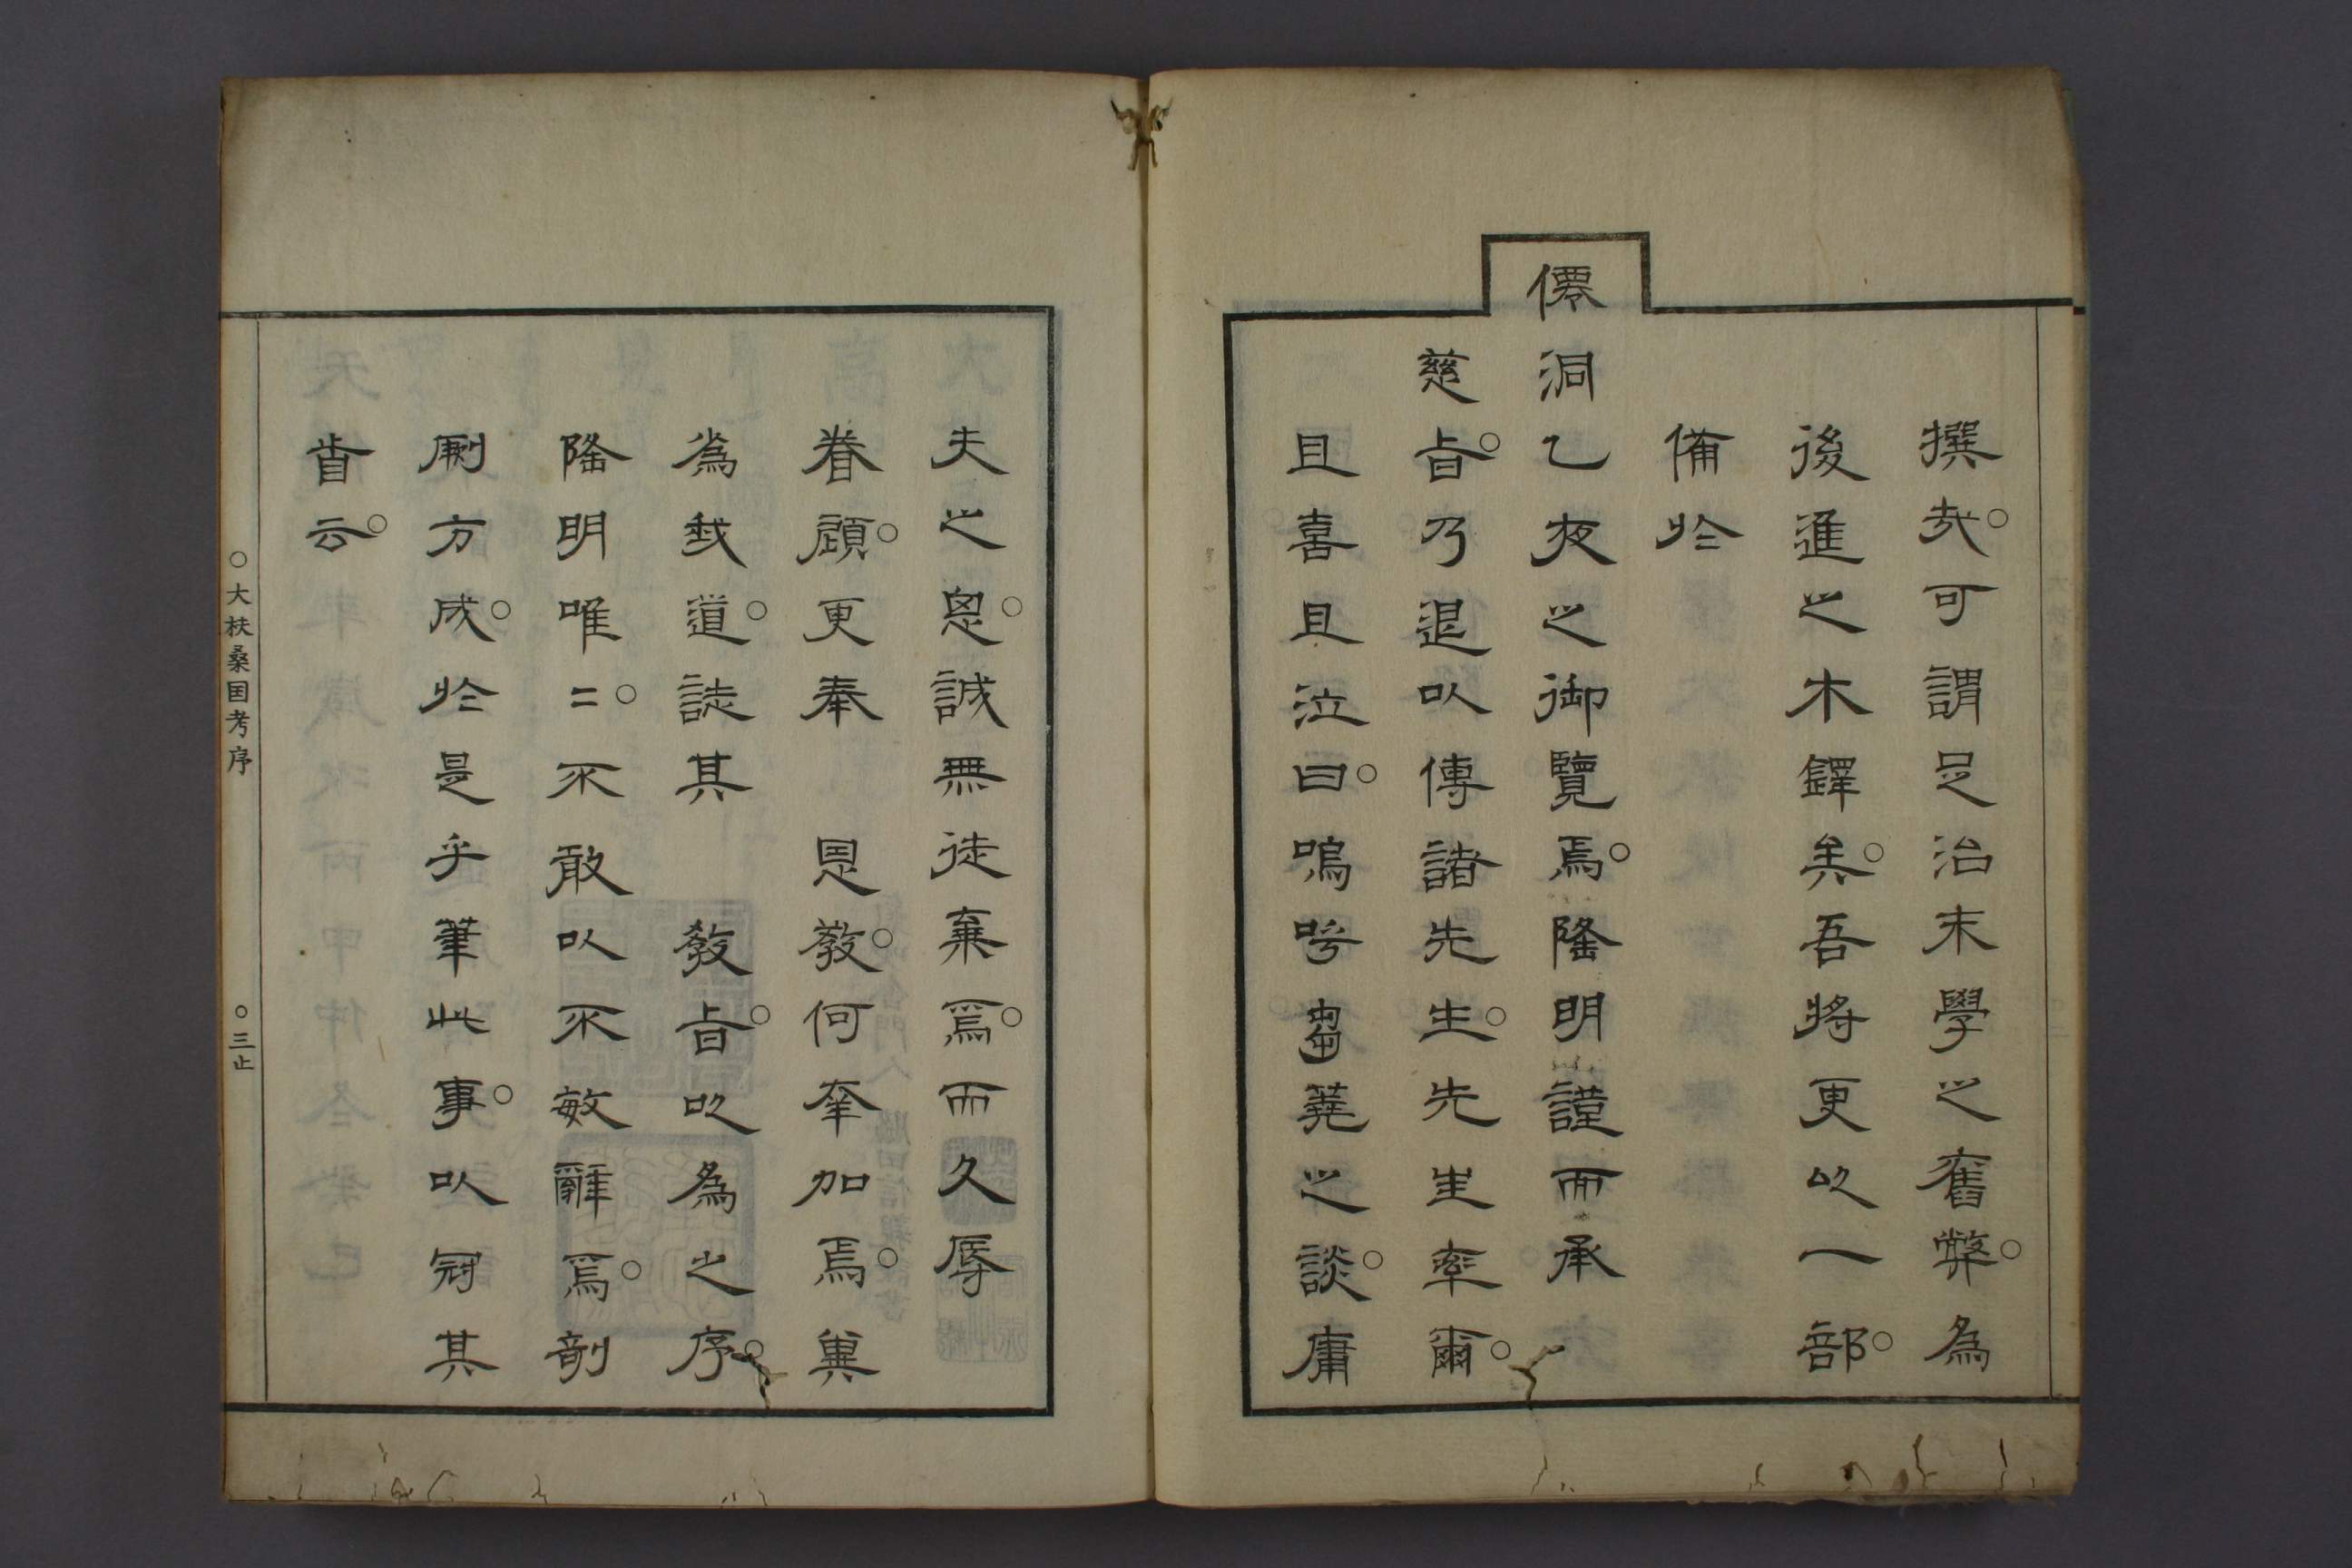 撰哉。可謂足治末學之舊弊。為
後進之木鐸矣。吾將更以一部。
備於
僊洞乙夜之御覽焉。隆明謹而承
慈旨。乃退以傳諸先生。先生率爾。
且喜且泣曰。嗚呼芻蕘之談。庸
夫之思。誠無徒棄焉。而久辱
眷顧。更奉 恩教。何幸加焉。冀
為我道。誌其 教旨。以為之序。
隆明唯二。不敢以不敏辭焉。剞
劂方成。於是乎筆此事。以冠其
首云。
○大扶桑国考序 ○三止